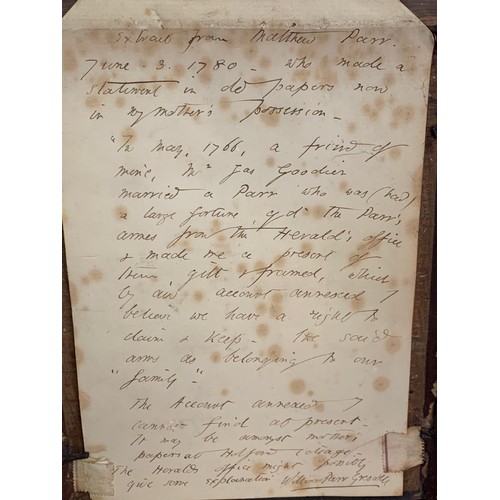 Extract from Matthew Parr.
June. 3. 1780 - who made a
statement in old papers now
in my mother's possession -
"In May, 1766, a friend of
mine, Mr Jas Goodier
married a Parr who was (had)
a large fortune, the Parr's
arms from the Herald's office
& made me a present of
them gilt & framed, which
by account annexed I
believe we have a right to
claim & keep - the said
arms as belonging to our
"family" -
The Account annexed I
cannot find at present -
It may be amongst mother's
papers at cottage -
The Herald's office might possibly
give some explanation William Parr